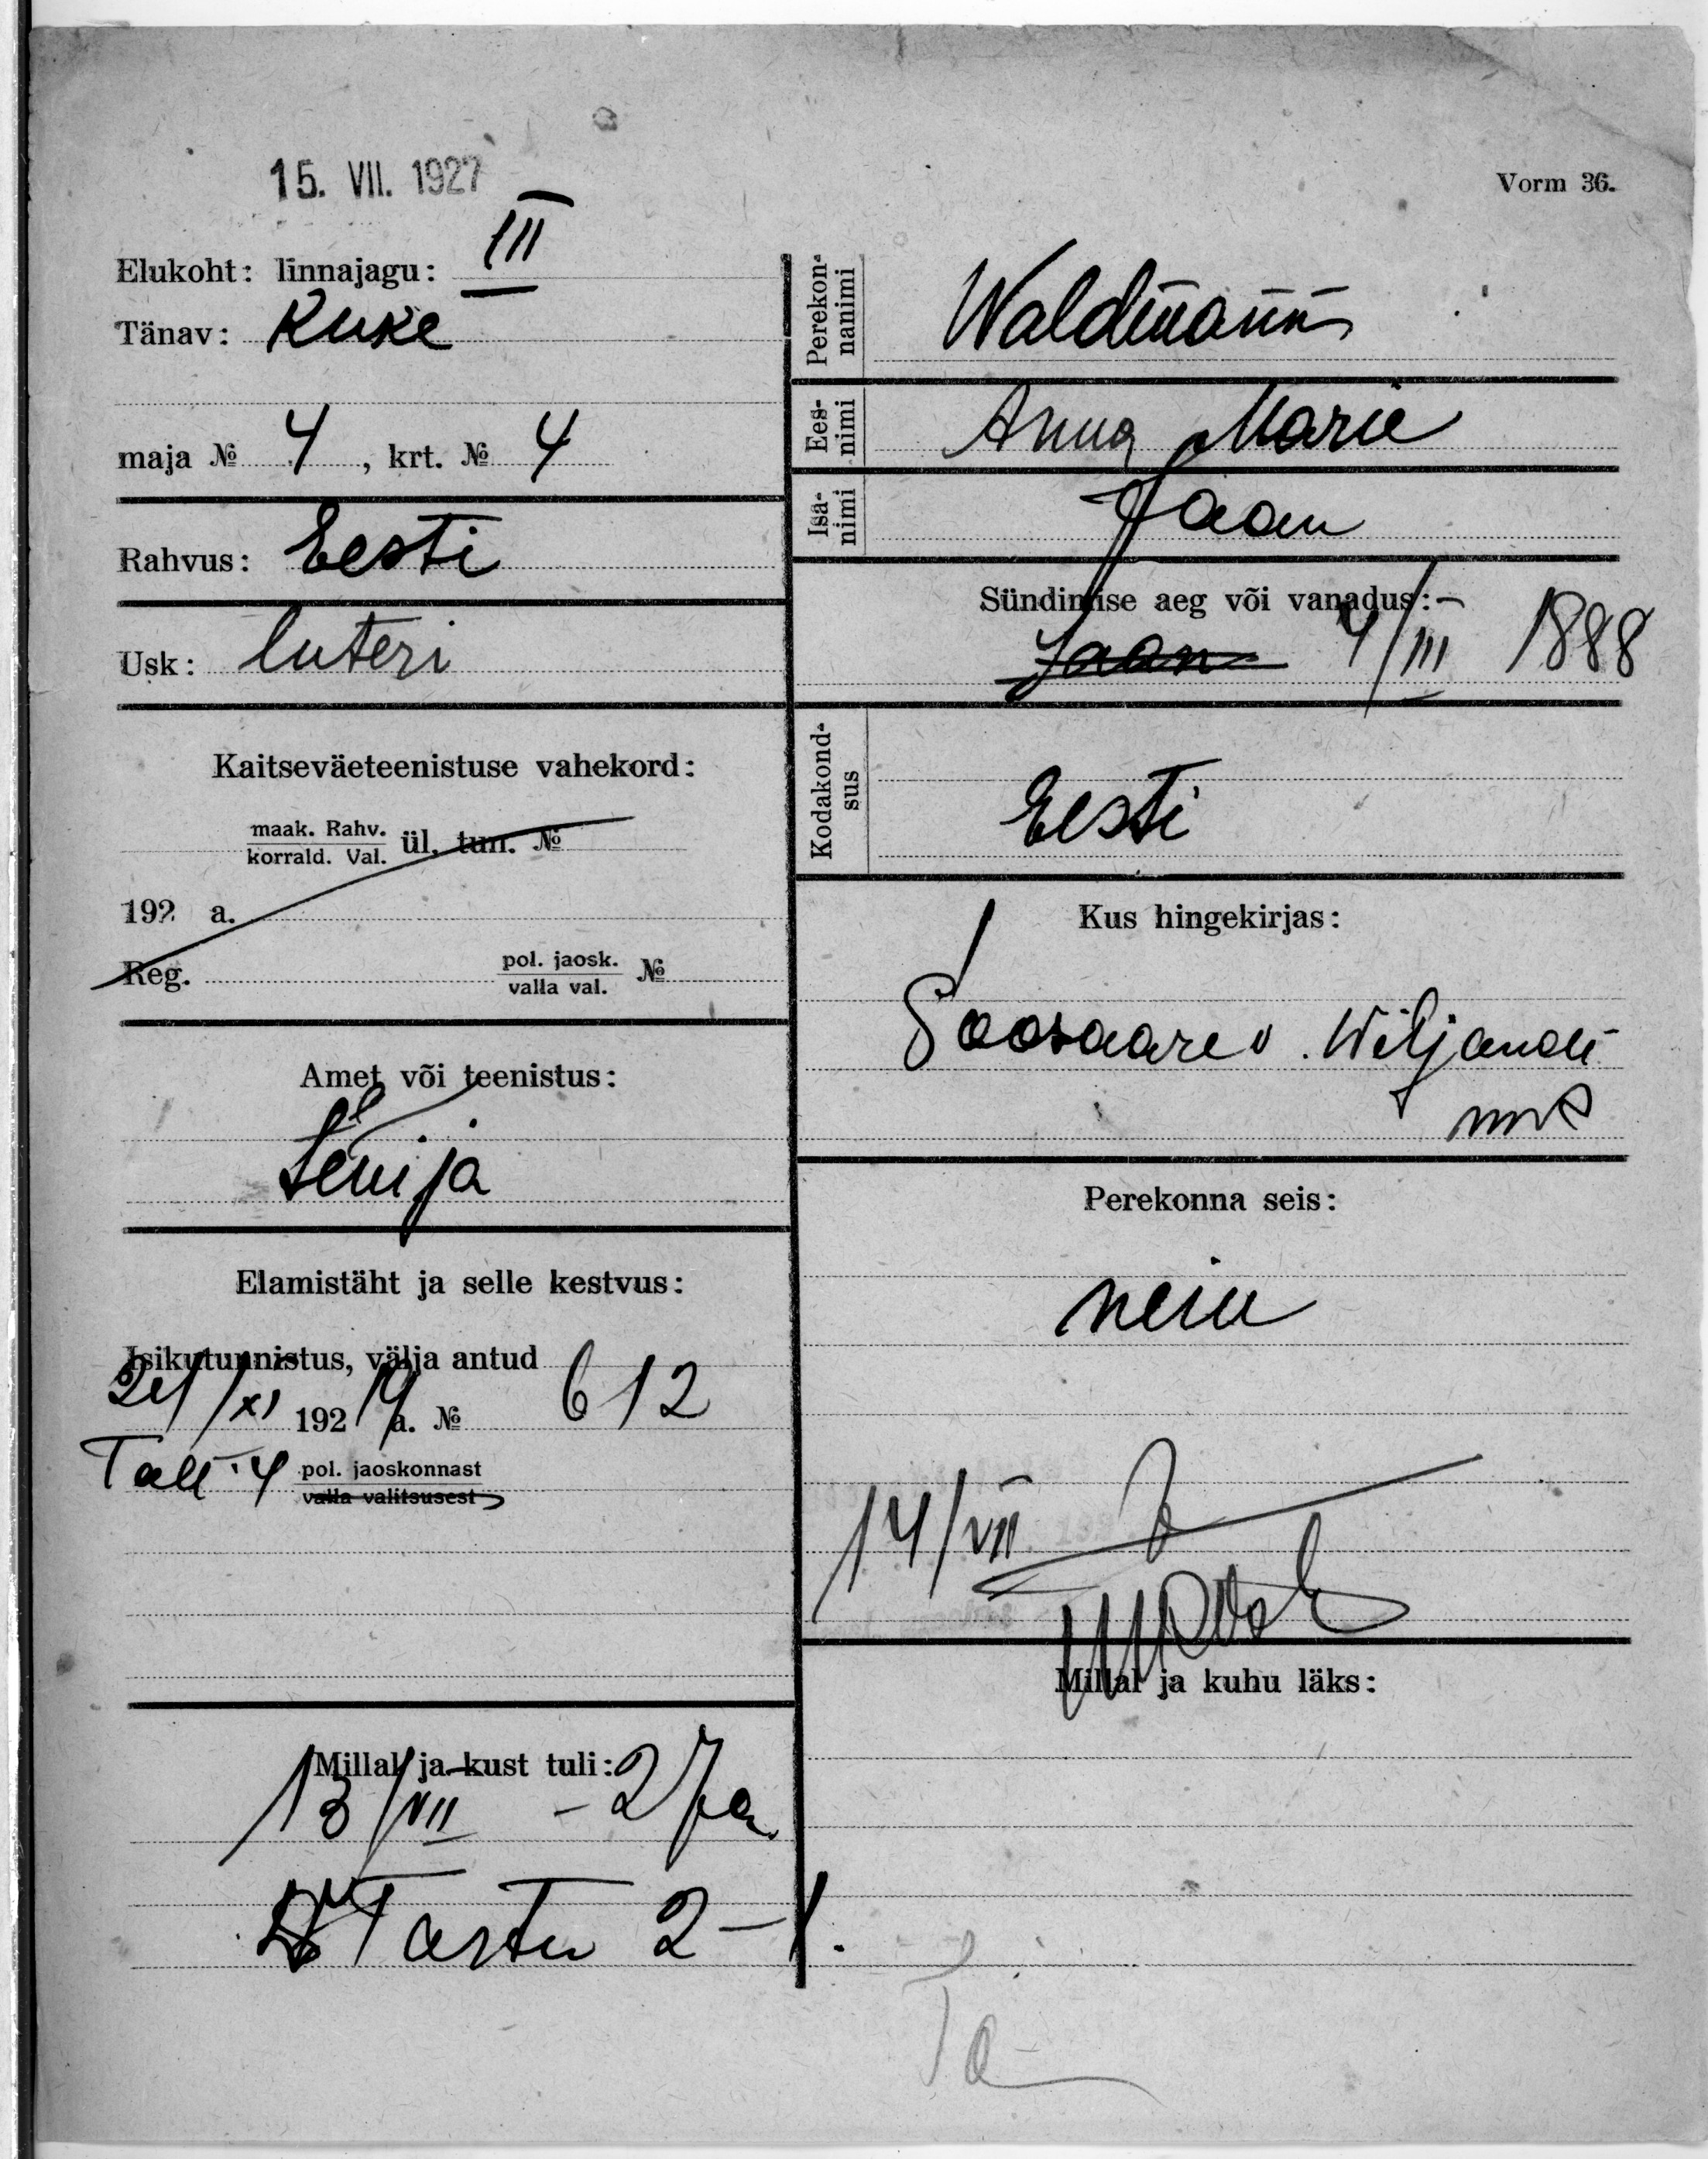 15. VII. 1927
Vorm 36.
Elukoht: linnajagu: III
Tänav: Kuke
maja № 4, krt. № 4
Rahvus: Eesti
Usk: luteri
Kaitseväeteenistuse vahekord:
maak. Rahv.
korrald. Val. ül. tun. №
192 a.
Reg. pol. jaosk.
valla val. №
Amet või teenistus:
tenija
Elamistäht ja selle kestvus:
Isikutunnistus, välja antud
21/XI 192 a. № 612
Tall. 4 pol. jaoskonnast
valla valitsusest
Millal ja kust tuli:
13/VII - 27 a.
Tartu 2-
Perekon-
nanimi
Waldmann
Ees-
nimi
Anna Marie
Isa-
nimi
Jaan
Sündimise aeg või vanadus:
Jaan 4/III 1888
Kodakond-
sus
Eesti
Kus hingekirjas:
Soosaare v. Wiljandi
mk
Perekonna seis:
neiu
14/VII
Millal ja kuhu läks: